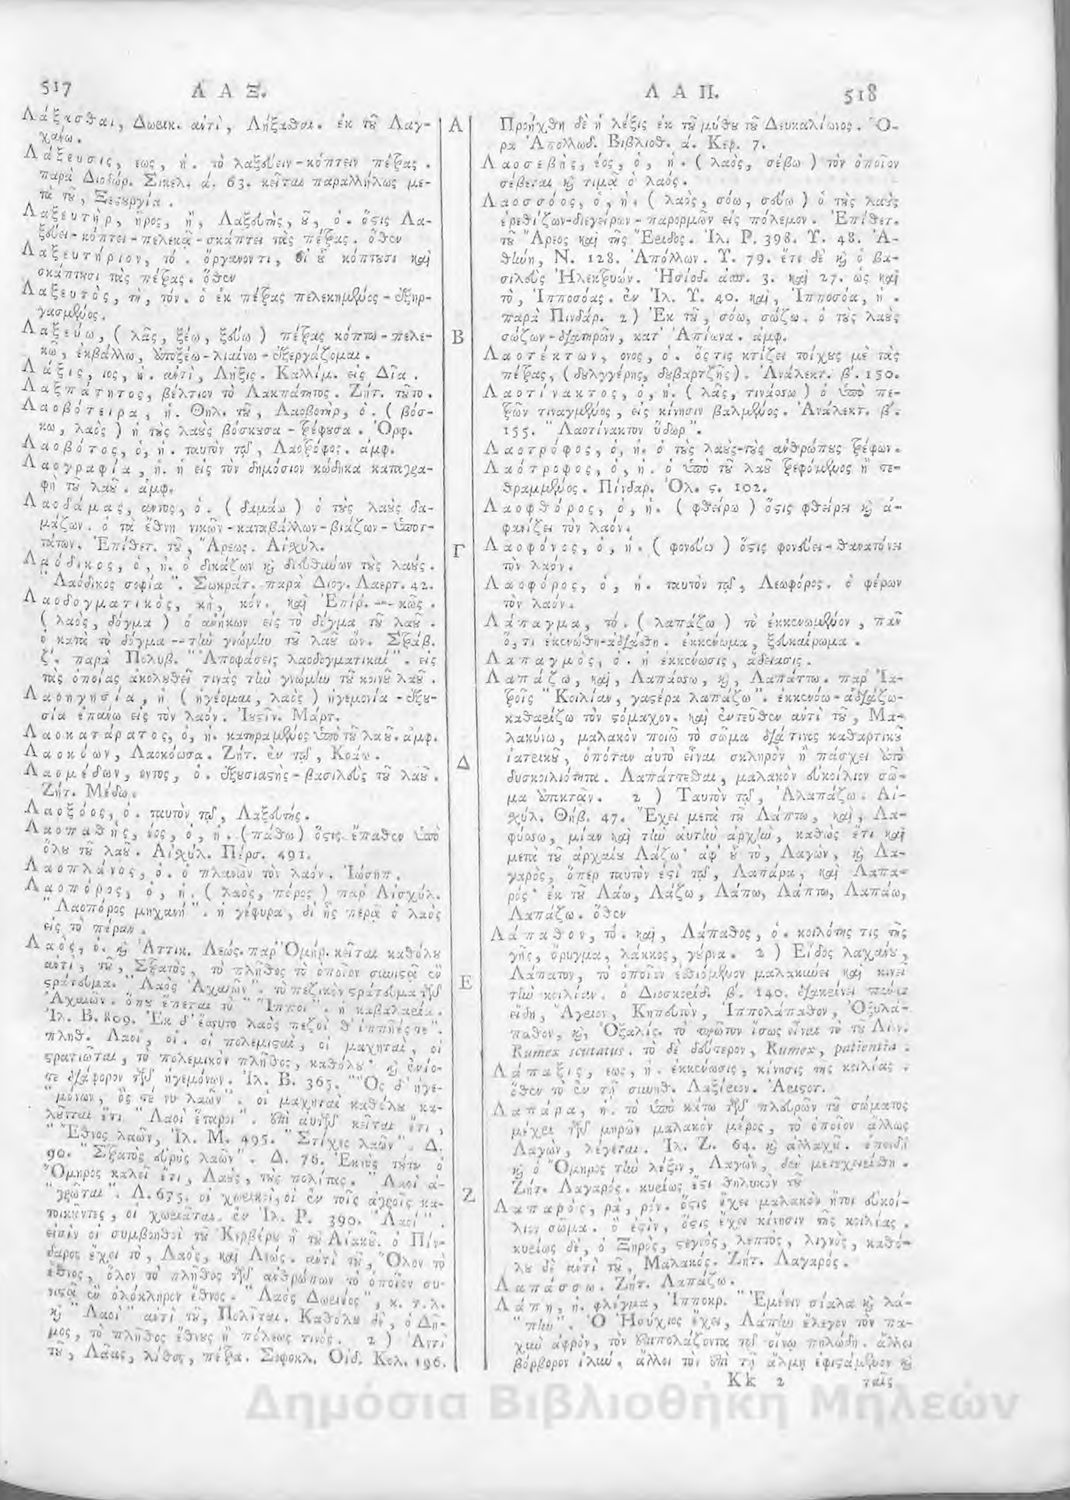 517 Λ Α Ξ.
Λάξασθαι, Δωρικ. αὐτὶ, Λήξασθαι. ἐκ τοῦ Λαγ-
χάνω.
Λάξευσις, εως, ἡ. τὸ λαξεύειν-κόπτειν πέτρας.
παρὰ Διοδώρ. Σικελ. ά. 63. κεῖται παραλλήλως με-
τὰ τοῦ, Ξεσουργία.
Λαξευτὴρ, ῆρος, ἢ, Λαξευτὴς, οῦ, ὁ. ὅστις Λα-
ξεύει-κόπτει-πελεκᾷ-σκάπτει τὰς πέτρας. ὅθεν
Λαξευτήριον, τό. ὄργανόν τι, δι' οὗ κόπτουσι καὶ
σκάπτουσι τὰς πέτρας. ὅθεν
Λαξευτὸς, τὴ, τόν. ὁ ἐκ πέτρας πελεκημένος-ἐξηρ-
γασμένος.
Λαξεύω, (λᾶς, ξέω, ξεύω) πέτρας κόπτω-πελε-
κῶ, ἐκβάλλω, ὑποξέω-λιαίνω-ἐξεργάζομαι.
Λάξις, ιος, ἡ. αὐτὶ, Λῆξις. Καλλίμ. εἰς Δία.
Λαξπάτητος, βέλτιον τὸ Λακπάτητος. Ζήτ. τοῦτο.
Λαοβότειρα, ἡ. Θηλ. τοῦ, Λαοβοτὴρ, ὁ. (βόσ-
κω, λαὸς) ἡ τοὺς λαοὺς βόσκουσα-τρέφουσα. Ὀρφ.
Λαοβότος, ὁ, ἡ. ταυτὸν τῷ, Λαοτρόφος. ἀμφ.
Λαογραφία, ἡ. ἡ εἰς τὸν δημόσιον κώδηκα καταγρα-
φὴ τοῦ λαοῦ. ἀμφ.
Λαοδάμας, αντος, ὁ. (δαμάω) ὁ τοὺς λαοὺς δα-
μάζων. ὁ τὰ ἔθνη νικῶν-καταβάλλων-βιάζων-ὑποτ-
τάτων. Ἐπίθετ. τοῦ, Ἄρεως. Αἰσχύλ.
Λαόδικος, ὁ, ἡ. ὁ δικάζων καὶ διευθύνων τοὺς λαούς.
"Λαόδικος σοφία". Σωκράτ. παρὰ Διογ. Λαερτ. 42.
Λαοδογματικὸς, κὴ, κόν. καὶ Ἐπίῤ. --κῶς.
(λαὸς, δόγμα) ὁ ἀνήκων εἰς τὸ δόγμα τοῦ λαοῦ.
ὁ κατὰ τὸ δόγμα --τὴν γνώμην τοῦ λαοῦ ὤν. Στράβ.
ζ'. παρὰ Πολυβ. "Ἀποφάσεις λαοδογματικαί". εἰς
τὰς ὁποίας ἀκολουθεῖ τινὰς τὴν γνώμην τοῦ κοινοῦ λαοῦ.
Λαοηγησία, ἡ (ἡγέομαι, λαὸς) ἡγεμονία-ἐξου-
σία ἐπάνω εἰς τὸν λαόν. Ἰουστῖν. Μάρτ.
Λαοκατάρατος, ὁ, ἡ. κατηραμένος ὑπὸ τοῦ λαοῦ. ἀμφ.
Λαοκόων, Λαοκόωσα. Ζήτ. ἐν τῷ, Κοέω.
Λαομέδων, οντος, ὁ. ἐξουσιαστὴς-βασιλεὺς τοῦ λαοῦ.
Ζήτ. Μέδω.
Λαοξόος, ὁ. ταυτὸν τῷ, Λαξευτής.
Λαοπαθὴς, έος, ὁ, ἡ. (πάθω) ὅστις ἔπαθεν ὑπὸ
ὅλου τοῦ λαοῦ. Αἰσχύλ. Πέρσ. 491.
Λαοπλάνος, ὁ. ὁ πλανῶν τὸν λαόν. Ἰώσηπ.
Λαοπόρος, ὁ, ἡ. (λαὸς, πόρος) παρ' Αἰσχύλ.
"Λαοπόρος μηχανή". ἡ γέφυρα, δι' ἧς περᾷ ὁ λαὸς
εἰς τὸ πέραν.
Λαὸς, ὁ. καὶ Ἀττικ. Λεώς. παρ' Ὁμήρ. κεῖται καθόλου
αὐτὶ, τοῦ, Στρατὸς, τὸ πλῆθος τὸ ὁποῖον συνιστᾷ ἓν
στράτευμα. "Λαὸς Ἀχαιῶν". τὸ πεζικὸν στράτευμα τῶν
Ἀχαιῶν. ὅπου ἕπεται τὸ "Ἵπποι". ἡ καβαλαρία.
Ἰλ. Β. 809. Ἐκ δ' ἔσσυτο λαὸς πεζοί θ' ἱππῆές τε".
πληθ. Λαοὶ, οἱ. οἱ πολεμισταὶ, οἱ μαχηταὶ, οἱ
στρατιῶται, τὸ πολεμικὸν πλῆθος, καθόλου καὶ ἐνίο-
τε διάφορον τῶν ἡγεμόνων. Ἰλ. Β. 365. "Ὅς θ' ἡγε-
"μόνων, ὅς τέ νυ λαῶν". οἱ μαχηταὶ καθόλου κα-
λοῦνται ἔτι "Λαοὶ ἕταροι". ἐπὶ αὐτῶν κεῖται ἔτι,
"Ἔθνος λαῶν, Ἰλ. Μ. 495. "Στίχες λαῶν". Δ.
90. "Στρατὸς εὐρὺς λαῶν". Δ. 76. Ἐκτὸς τούτων ὁ
Ὅμηρος καλεῖ ἔτι, Λαοὺς, τοὺς πολίτας. "Λαοὶ ἀ-
"γρῶται". Λ. 675. οἱ χωρικοὶ, οἱ ἐν τοῖς ἀγροῖς κα-
τοικοῦντες, οἱ χωριᾶται. ἐν Ἰλ. Ρ. 390. "Λαοὶ".
εἰσὶν οἱ συμβοηθοὶ τοῦ Κιρβέρου ἢ τοῦ Αἰακοῦ. ὁ Πίν-
δαρος ἔχει τὸ, Λαὸς, καὶ Λεώς. αὐτὶ τοῦ, Ὅλον τὸ
ἔθνος, ὅλον τὸ πλῆθος τῶν ἀνθρώπων τὸ ὁποῖον συ-
νιστᾷ ἓν ὁλόκληρον ἔθνος. "Λαὸς Δωριεὺς", κ. τ. λ.
καὶ "Λαοὶ" αὐτὶ τοῦ, Πολῖται. Καθόλου δὲ, ὁ Δῆ-
μος, τὸ πλῆθος ἔθνους ἢ πόλεως τινός. 2) Ἀντὶ
τοῦ, Λᾶας, λίθος, πέτρα. Σοφοκλ. Οἰδ. Κολ. 196.
Α
Β
Γ
Δ
Ε
Ζ
Λ Α Π. 518
Προήχθη δὲ ἡ λέξις ἐκ τοῦ μύθου τοῦ Δευκαλίωνος. Ὅ-
ρα Ἀπολλωδ. Βιβλιοθ. ά. Κεφ. 7.
Λαοσεβὴς, έος, ὁ, ἡ. (λαὸς, σέβω) τὸν ὁποῖον
σέβεται καὶ τιμᾷ ὁ λαός.
Λαοσσόος, ὁ, ἡ. (λαὸς, σόω, σεύω) ὁ τοὺς λαοὺς
ἐρεθίζων-διεγείρων-παρορμῶν εἰς πόλεμον. Ἐπίθετ.
τοῦ Ἄρεος καὶ τῆς Ἔριδος. Ἰλ. Ρ. 398. Υ. 48. Ἀ-
θηνη, Ν. 128. Ἀπόλλων. Υ. 79. ἔτι δὲ καὶ ὁ βα-
σιλεὺς Ἠλεκτρύων. Ἡσίοδ. ἀσπ. 3. καὶ 27. ὡς καὶ
τὸ, Ἱπποσόας. ἐν Ἰλ. Υ. 40. καὶ, Ἱπποσόα, ἡ.
παρὰ Πινδάρ. 2) Ἐκ τοῦ, σόω, σώζω. ὁ τοὺς λαοὺς
σώζων-διατηρῶν, κατ' Ἀπίωνα. ἀμφ.
Λαοτέκτων, ονος, ὁ. ὅστις κτίζει τοίχους μὲ τὰς
πέτρας, (δουλγγέρης, δουβαρτζῆς). Ἀνάλεκτ. β'. 150.
Λαοτίνακτος, ὁ, ἡ. (λᾶς, τινάσσω) ὁ ὑπὸ πε-
τρῶν τιναγμένος, εἰς κίνησιν βαλμένος. Ἀνάλεκτ. β'.
155. "Λαοτίνακτον ὕδωρ".
Λαοτρόφος, ὁ, ἡ. ὁ τοὺς λαοὺς-τοὺς ἀνθρώπους τρέφων.
Λαότροφος, ὁ, ἡ. ὁ ὑπὸ τοῦ λαοῦ τρεφόμενος ἢ τε-
θραμμένος. Πίνδαρ. Ὀλ. ς. 102.
Λαοφθόρος, ὁ, ἡ. (φθείρω) ὅστις φθείρει καὶ ἀ-
φανίζει τὸν λαόν.
Λαοφόνος, ὁ, ἡ. (φονεύω) ὅστις φονεύει-θανατόνει
τὸν λαόν.
Λαοφόρος, ὁ, ἡ. ταυτὸν τῷ, Λεωφόρος. ὁ φέρων
τὸν λαόν.
Λάπαγμα, τό. (λαπάζω) τὸ ἐκκενωμένον, πᾶν
ὅ, τι ἐκενώθη-ἀδειάσθη. ἐκκένωμα, ξεκαίρωμα.
Λαπαγμὸς, ὁ. ἡ ἐκκένωσις, ἀδείασις.
Λαπάζω, καὶ, Λαπάσσω, καὶ, Λαπάττω. παρ' Ἰα-
τροῖς "Κοιλίαν, γαστέρα λαπάζω". ἐκκενόω-ἀδειάζω-
καθαρίζω τὸν στόμαχον. καὶ ἐντεῦθεν αὐτὶ τοῦ, Μα-
λακύνω, μαλακὸν ποιῶ τὸ σῶμα διά τινος καθαρτικοῦ
ἰατρικοῦ, ὁπόταν αὐτὸ εἶναι σκληρὸν ἢ πάσχει ὑπὸ
δυσκοιλιότητα. Λαπάττεσθαι, μαλακὸν εὐκοίλιον σῶ-
μα ἀποκτᾶν. 2) Ταυτὸν τῷ, Ἀλαπάζω. Αἰ-
σχύλ. Θήβ. 47. Ἔχει μετὰ τοῦ Λάπτω, καὶ, Λα-
φύσσω, μίαν καὶ τὴν αὐτὴν ἀρχὴν, καθὼς ἔτι καὶ
μετὰ τοῦ ἀρχαίου Λάζω· ἀφ' οὗ τὸ, Λαγὼν, καὶ Λα-
γαρὸς, ὅπερ ταυτὸν ἐστὶ τῷ, Λαπάρα, καὶ Λαπα-
ρός· ἐκ τοῦ Λάω, Λάζω, Λάπω, Λάπτω, Λαπάω,
Λαπάζω. ὅθεν
Λάπαθον, τό. καὶ, Λάπαθος, ὁ. κοιλότης τις τῆς
γῆς, ὄρυγμα, λάκκος, γούρνα. 2) Εἶδος λαχάνου,
Λάπατον, τὸ ὁποῖον ἐσθιόμενον μαλακώνει καὶ κινεῖ
τὴν κοιλίαν. ὁ Διοσκορίδ. β'. 140. διακρίνει πολλὰ
εἴδη, Ἄγριον, Κηπευτὸν, Ἱππολάπαθον, Ὀξυλά-
παθον, καὶ, Ὀξαλίς. τὸ πρῶτον ἴσως εἶναι τὸ τοῦ Λιν.
Rumex scutatus. τὸ δὲ δεύτερον, Rumex, patientia.
Λάπαξις, εως, ἡ. ἐκκένωσις, κίνησις τῆς κοιλίας.
ὅθεν τὸ ἐν τῇ συνηθ. Λαξίριον. Ἀριστ.
Λαπάρα, ἡ. τὸ ὑπὸ κάτω τῶν πλευρῶν τοῦ σώματος
μέχρι τῶν μηρῶν μαλακὸν μέρος, τὸ ὁποῖον ἄλλως
Λαγὼν, λέγεται. Ἰλ. Ζ. 64. καὶ ἀλλαχοῦ. ἐπειδὴ
καὶ ὁ Ὅμηρος τὴν λέξιν, Λαγὼν, δὲν μετεχειρίσθη.
Ζήτ. Λαγαρός. κυρίως ἐστὶ θηλυκὸν τοῦ
Λαπαρὸς, ρὰ, ρόν. ὅστις ἔχει μαλακὸν ἤτοι εὐκοί-
λιον σῶμα. ὅ ἐστιν, ὅστις ἔχει κίνησιν τῆς κοιλίας.
κυρίως δὲ, ὁ Ξηρὸς, στεγνὸς, λεπτὸς, λιγνὸς, καθό-
λου δὲ αὐτὶ τοῦ, Μαλακός. Ζήτ. Λαγαρός.
Λαπάσσω. Ζήτ. Λαπάζω.
Λάπη, ἡ. φλέγμα, Ἱπποκρ. "Ἐμέειν σίαλα καὶ λά-
"πην". Ὁ Ἡσύχιος ἔχει, Λάπην ἔλεγον τὸν πα-
χὺν ἀφρὸν, τὸν ἐπιπολάζοντα τῷ οἴνῳ πηλώδη. ἄλλοι
βόρβορον ἰλὺν, ἄλλοι τὸν ἐπὶ τῇ ἅλμῃ ἐφιστάμενον καὶ
Kk 2 ταῖς
Δημόσια Βιβλιοθήκη Μηλεών